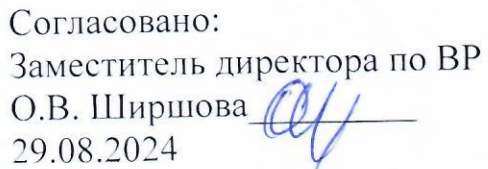 Согласовано:
Заместитель директора по ВР
О.В. Ширшова
29.08.2024